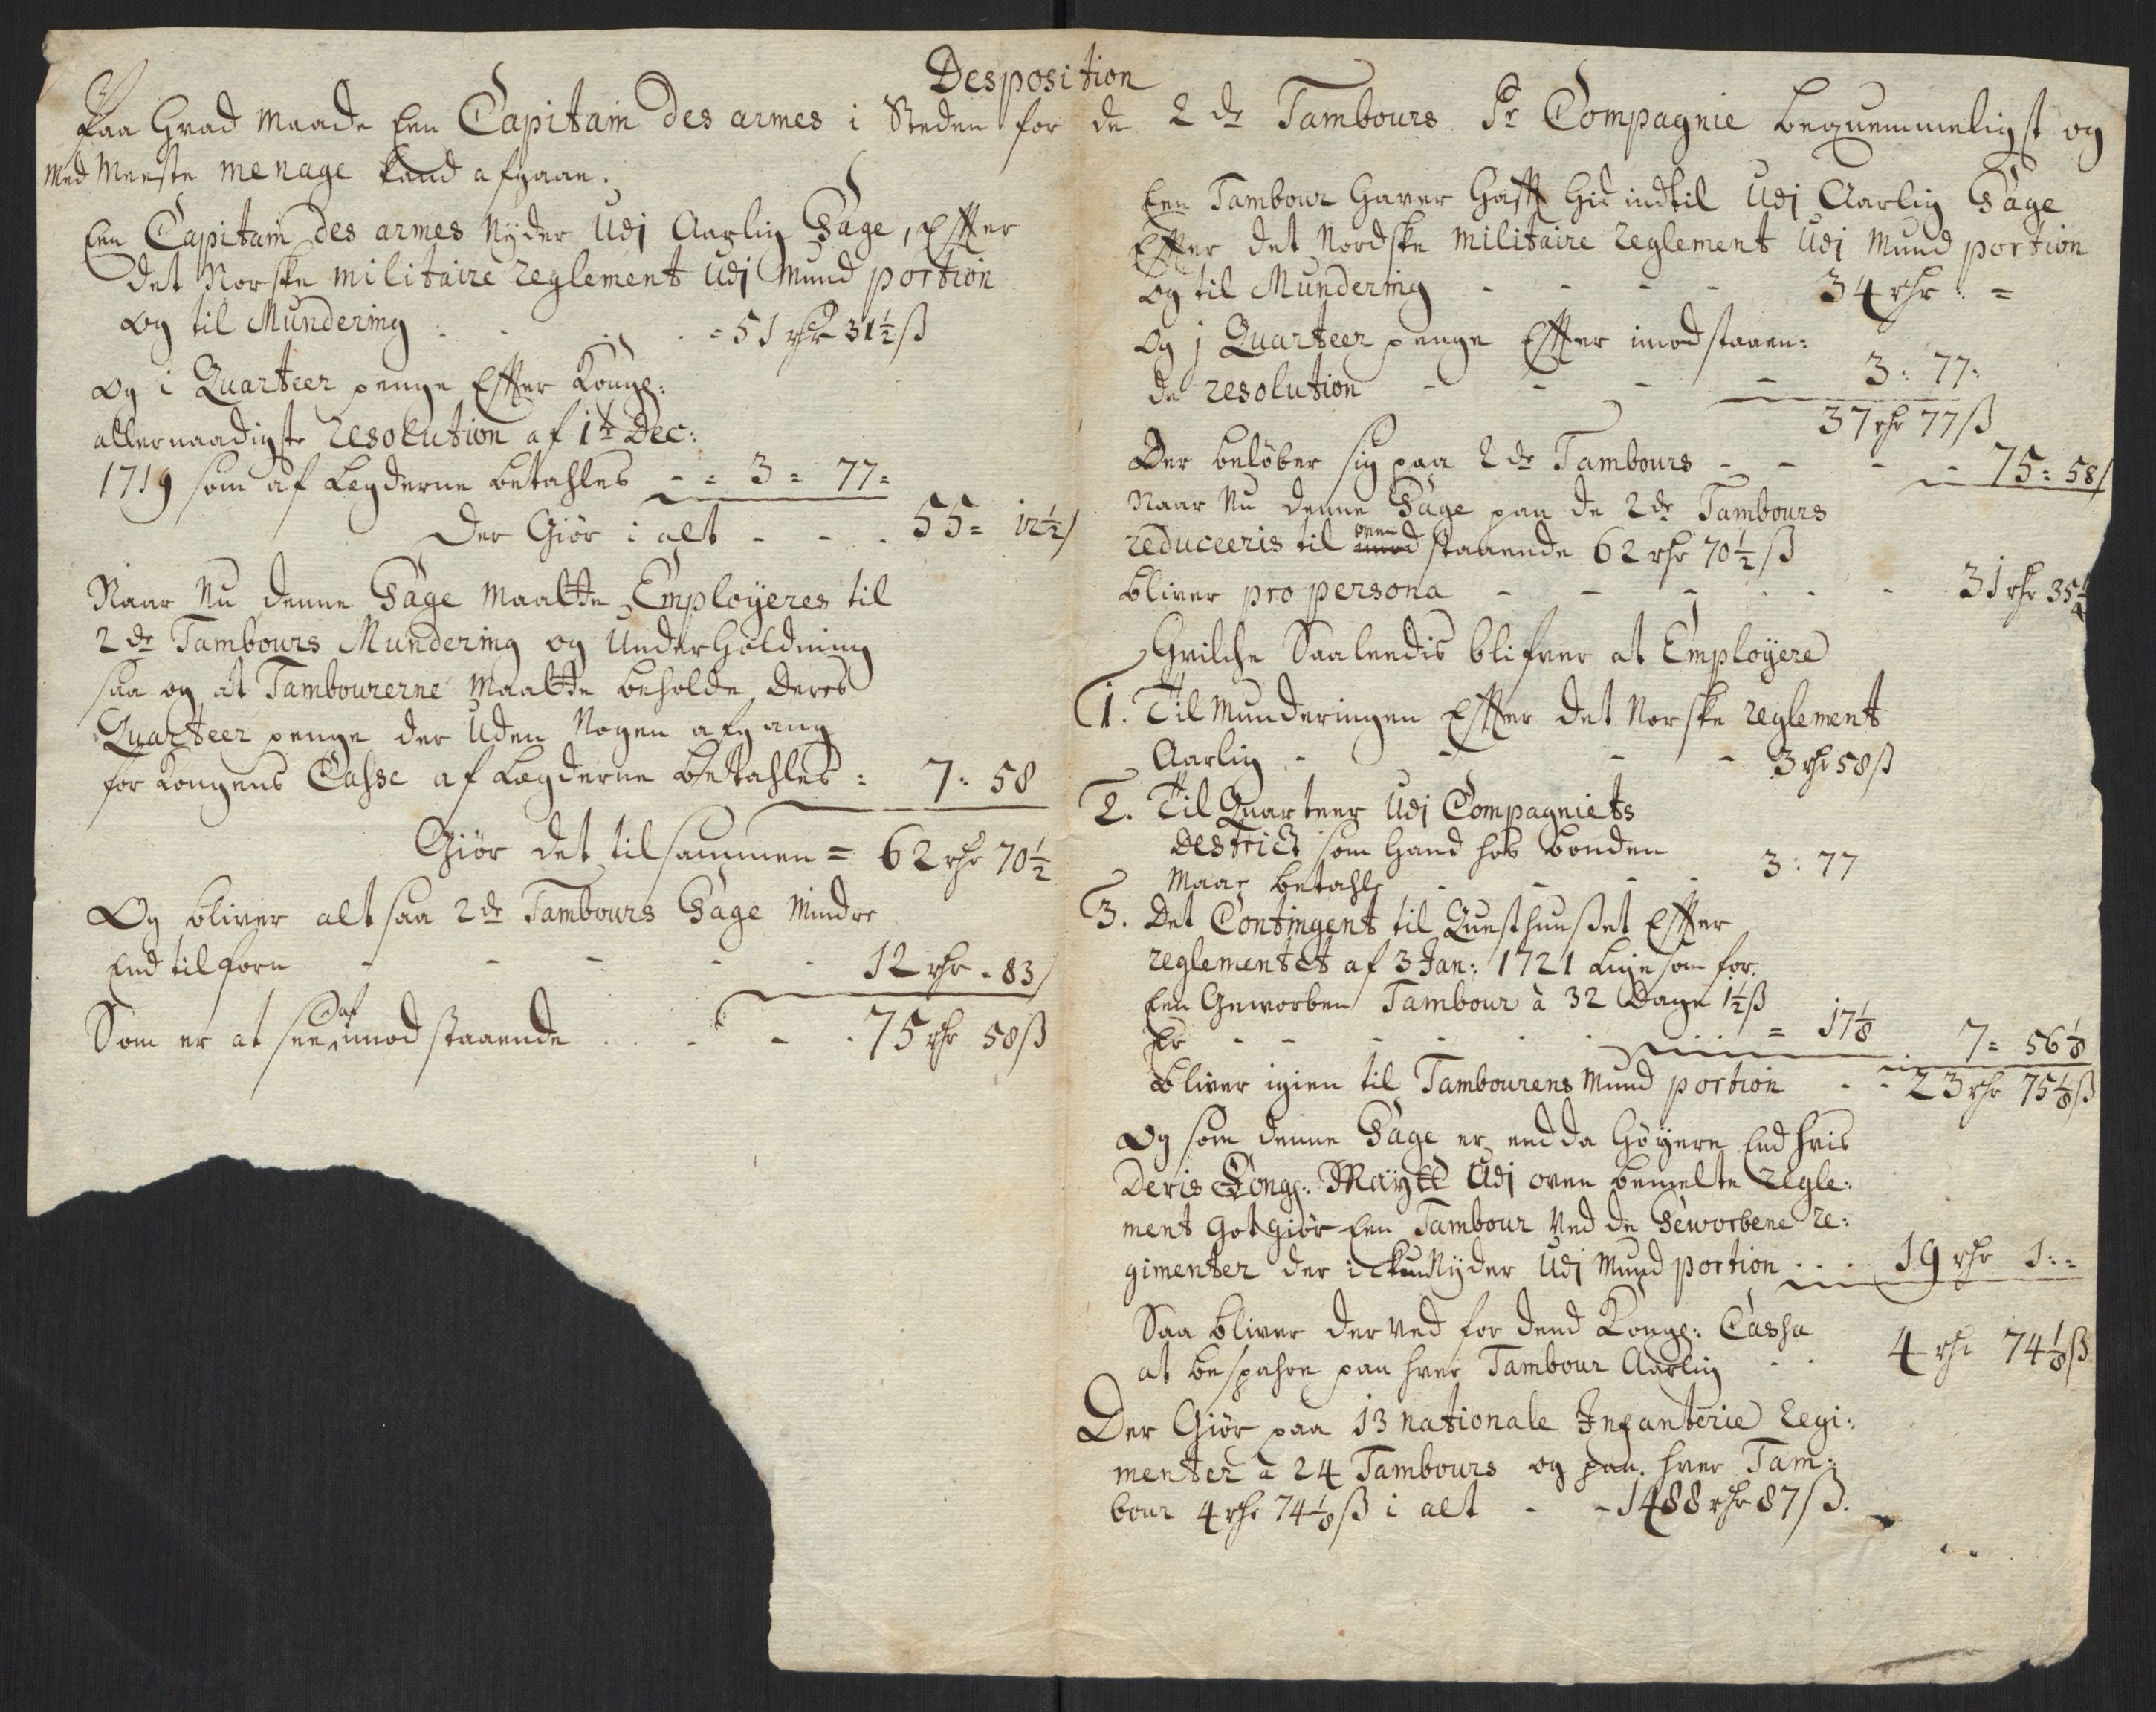 Desposition
Paa Hvad Maade Een Capitain des armes i Steden for de 2de Tambours Pr Compagnie beqvemmeligst og
med Meeste menage kand afgaae.
Een Capitain des armes Nyder Udj Aarlig Gage, Effter
Det Norske militaire reglement Udj Mund portion
og til Mundering - - - = 51 rhr 31½ ß
og i Quarteer penge Effter Konge:
allernaadigste Resolution af 1te Dec:
1719 som af Legderne betahles - = 3 = 77 =
Der Giör i alt - - - 55 = 12½ /
Naar Nu denne Gage Maatte Employeres til
2de Tambours Mundering og Underholdning
saa og at Tambourerne Maatte beholde deres
Quarteer penge der Uden Nogen afgang
for Kongens Casse af Legderne betahles : 7 : 58
Giör det tilsammen = 62 rhr 70½
Og bliver altsaa 2de Tambours Gage Mindre
End tilforn - - - - - 12 rhr - 83 /
Som er at see af imod staaende - - - 75 rhr 58 ß
Een Tambour haver hafft hid indtil Udj Aarlig Gage
Effter det Nordske militaire reglement Udj Mund portion
og til Mundering - - - - 34 rhr : =
og j Quarteer penge Effter imodstaaen:
de resolution - - - - 3 : 77 :
37 rhr 77 ß
Der belöber sig paa 2de Tambours - - - - 75 = 58 /
Naar Nu denne Gage paa de 2de Tambours
reduceeris til oven staaende 62 rhr 70½ ß
bliver pro persona - - - - - - 31 rhr 35¼
Hvilche Saaleedis blifver at Employere
1. Til Munderingen Effter det Norske reglement
Aarlig - - - - 3 rhr 58 ß
2. Til Quarteer Udj Compagniets
District som Hand hos bonden
Maae betahle - - - - 3 : 77
3. Det Contingent til Questhuußet Effter
reglementet af 3 Jan: 1721 Lige som for
Een Geworben Tambour à 32 Dage 1½ ß
Er - - - - - = 17⅛ . 7 = 56⅛
bliver igien til Tambourens Mund portion - - 23 rhr 75⅛ ß
Og som denne Gage er endda höyere End hvis
Deris Konge: Maytt Udj oven bemelte regle:
ment Godtgiör Een Tambour Ved de Geworbene re:
gimenter der ickun Nyder Udj Mund portion . . . 19 rhr 1 : =
Saa bliver der ved for dend Konge: Cassa
at bespahre paa hver Tambour Aarlig - - 4 rhr 74⅛ ß
Der Giör paa 13 nationale Infanterie Regi:
menter a 24 Tambours og paa hver Tam:
bour 4 rhr 74⅛ ß i alt - - 1488 rhr 87 ß.